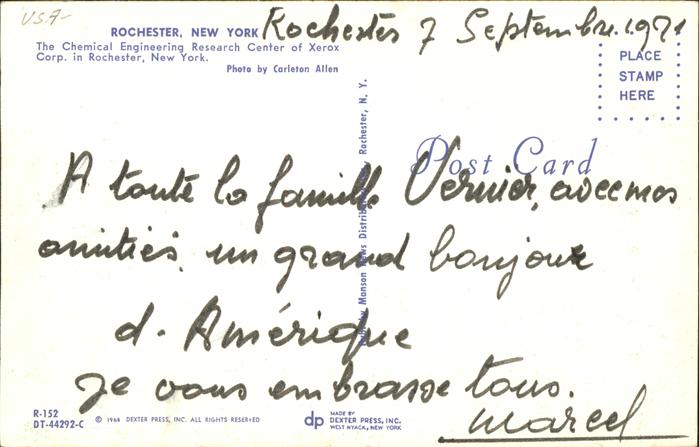 USA-
ROCHESTER, NEW YORK
Rochester 7 Septembre.1971
The Chemical Engineering Research Center of Xerox
Corp. in Rochester, New York.
Photo by Carleton Allen
PLACE
STAMP
HERE
Post Card
Manson News Distributors, Rochester, N. Y.
A toute la famille Vernier, avec mes
amitiés, un grand bonjour
d. Amérique
Je vous embrasse tous.
Marcel
R-152
DT-44292-C
© 1968 DEXTER PRESS, INC. ALL RIGHTS RESERVED
dp
MADE BY
DEXTER PRESS, INC.
WEST NYACK, NEW YORK